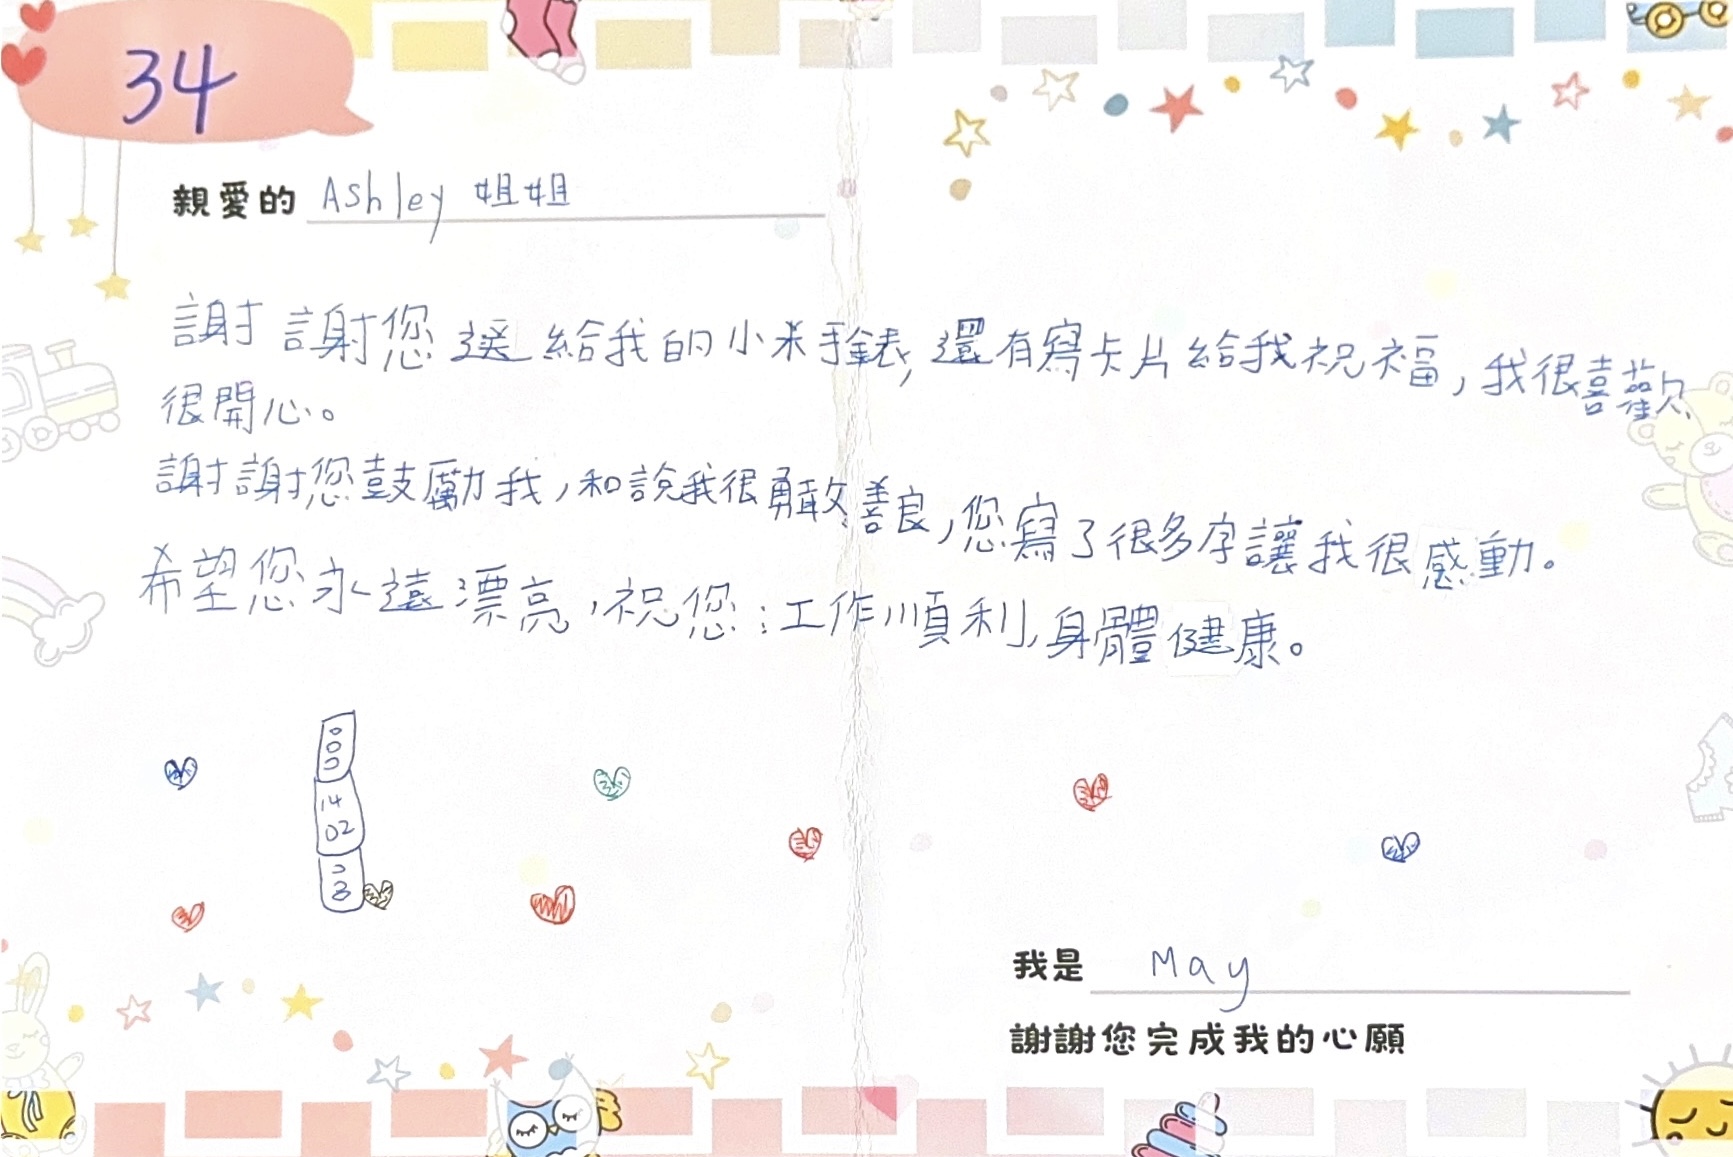 34
親愛的 Ashley 姐姐
謝謝您送給我的小米手錶,還有寫卡片給我祝福,我很喜歡
很開心。
謝謝您鼓勵我,和說我很勇敢善良,您寫了很多字讓我很感動。
希望您永遠漂亮,祝您:工作順利,身體健康。
14
02
我是 May
謝謝您完成我的心願